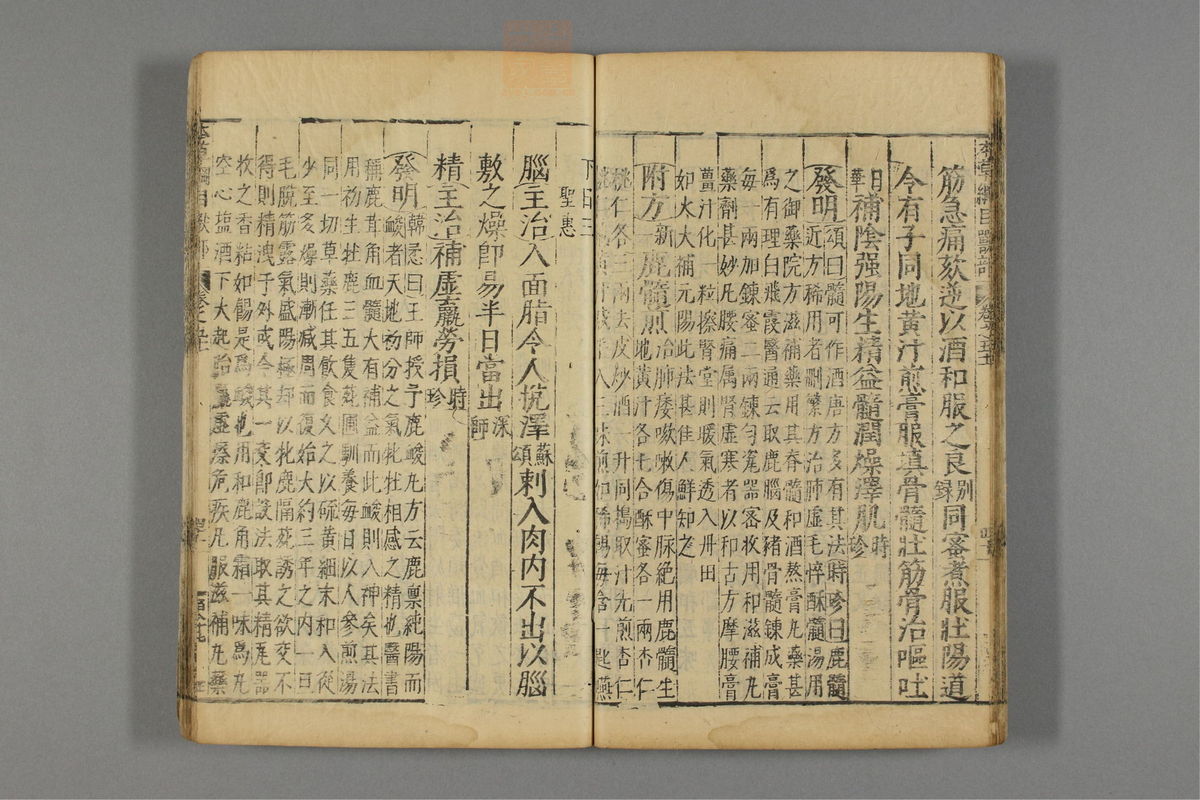 筋急痛欬逆以酒和服之良别錄同蜜煮服壯陽道
令有子同地黄汁煎膏服填骨髓壯筋骨治嘔吐
日華補陰强陽生精益髓潤燥澤肌時珍
發明頌曰髓可作酒唐方多有其法時珍曰鹿髓
近方稀用者刪繁方治肺虛毛悴酥髓湯用
之御藥院方滋補藥用其脊髓和酒熬膏丸藥甚
爲有理白飛霞醫通云取鹿腦及豬骨髓鍊成膏
每一兩加鍊蜜二兩鍊勻瓷器密收用和滋補丸
藥劑甚妙凡腰痛属腎虛寒者以和古方摩腰膏
薑汁化一粒擦腎堂則暖氣透入丹田
如火大補元陽此法甚佳人鮮知之
附方新一鹿髓煎治肺痿咳嗽傷中脉絶用鹿髓生
地黄汁各七合酥蜜各一兩杏仁
桃仁各三兩去皮炒酒一升同搗取汁先煎杏仁
入三味煎如稀餳每含一匙嚥
下日三
聖惠
腦主治入面脂令人悦澤蘇頌刺入肉内不出以腦
敷之燥卽易半日當出深師
精主治補虛羸勞損時珍
發明韓㦂曰王師授予鹿峻丸方云鹿禀純陽而
峻者天地初分之氣牝牡相感之精也醫書
稱鹿茸角血髓大有補益而此峻則入神矣其法
用初生牡鹿三五隻苑圃馴養每日以人參煎湯
同一切草藥任其飲食久之以硫黄細末和入從
少至多燥則漸减周而復始大約三年之内一旦
毛脱筋露氣盛陽極却以牝鹿隔苑誘之欲交不
得則精洩于外或令其一交卽設法取其精瓦器
收之香粘如餳是爲峻也用和鹿角霜一味爲丸
空心塩酒下大起胎羸虛瘵危疾凡服滋補丸藥